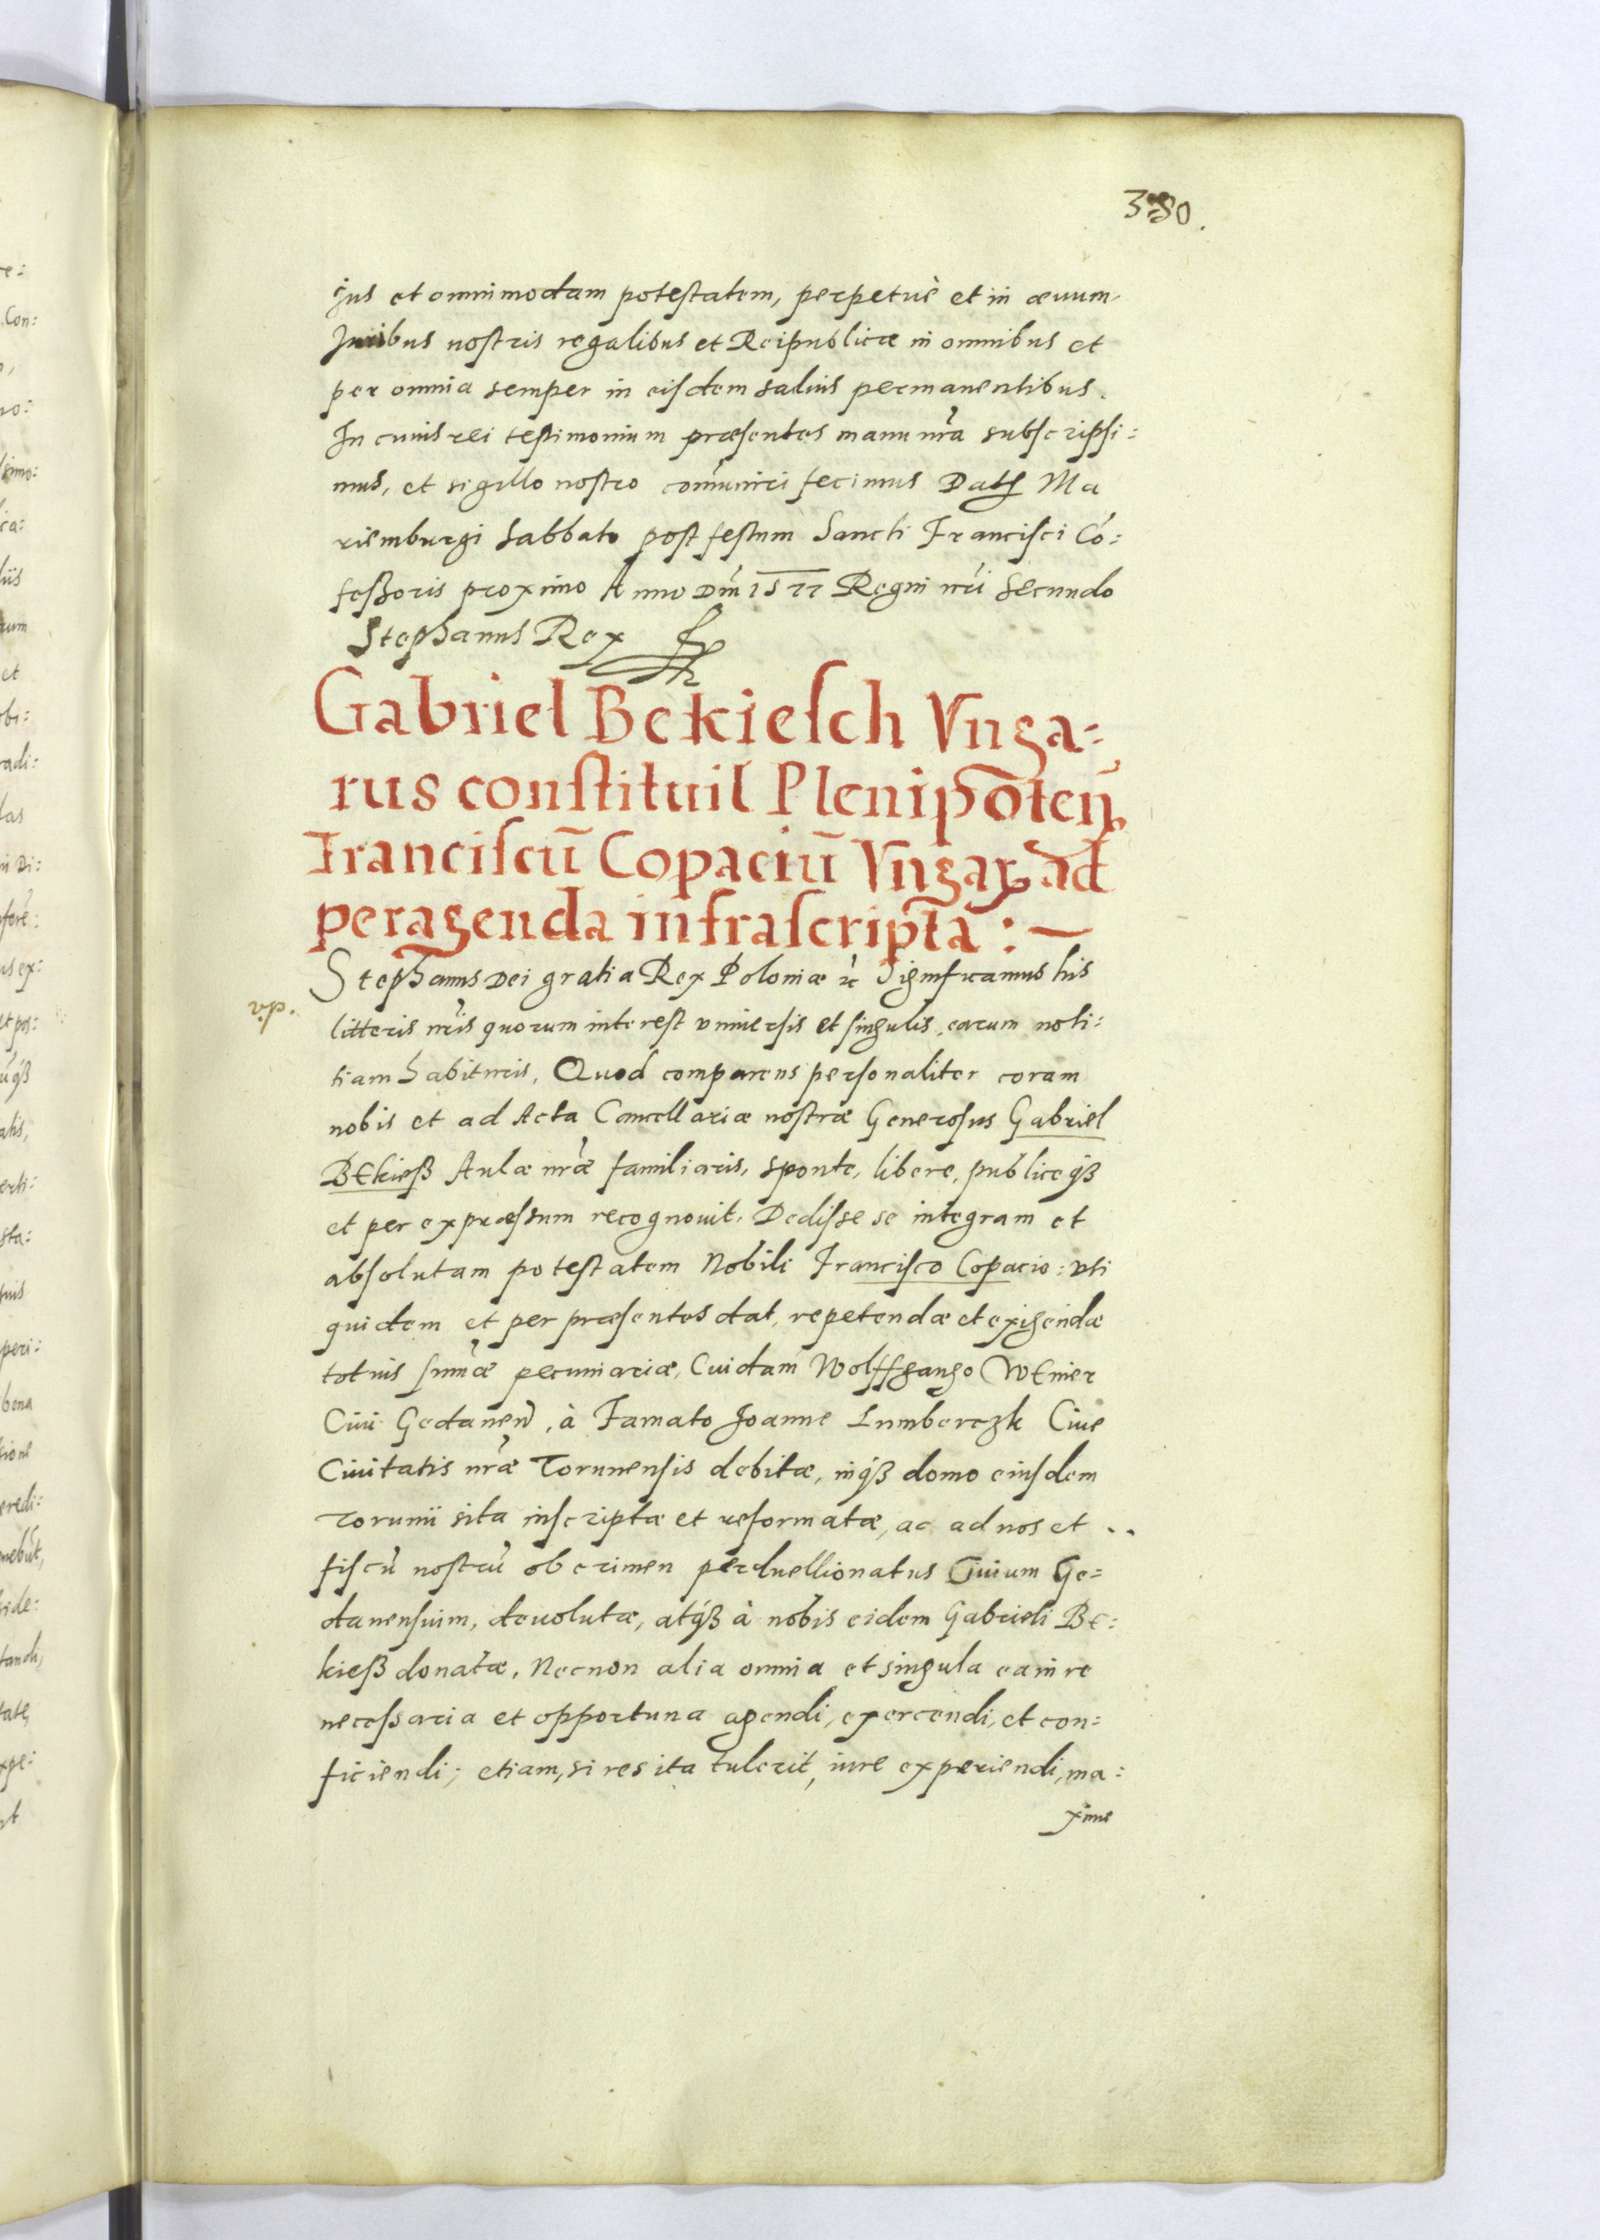 380.
jus et omnimodam potestatem, perpetuè et in æuum.
Juribus nostris regalibus et Reipublicæ in omnibus et
per omnia semper in eisdem saluis permanentibus.
In cuius rei testimonium præsentes manu nr̃a subscripsi:
mus, et sigillo nostro com̃uniri fecimus Datę Ma
riemburgi Sabbato post festum Sancti Francisci Cõ:
feßoris proximo Anno Dn̄i 1577 Regni nr̃i Secundo
Stephanus Rex
Gabriel Bekiesch Vnga:
rus constituit Plenipōten̄.
Franciscū Copaciū Vngar. ad
peragenda infrascripta : —
Stephanus Dei gratia Rex Poloniæ ꝛc Significamus his
v.p.
litteris nr̃is quorum interest vniuersis et singulis, earum noti:
tiam habituris, Quod comparens personaliter coram
nobis et ad Acta Cancellariæ nostræ Generosus Gabriel
Bekieß Aulæ nr̃æ familiaris, sponte, libere, publiceqꝫ
et per expræssum recognouit. Dedisse se integram et
absolutam potestatem Nobili Francisco Copacio: vti
quidem et per præsentes dat, repetendæ et exigendæ
totius sum̃æ pecuniariæ, Cuidam Wolffgango Weiner
Ciui Gedanen̄, à Famato Joanne Lumberczk Ciue
Ciuitatis nr̃æ Torunensis debitæ, inqꝫ domo eiusdem
Torunii sita inscriptæ et reformatæ, ac ad nos et ..
fiscũ nostrũ ob crimen perduellionatus Ciuium Ge=
danensium, deuolutæ, atqꝫ à nobis eidem Gabrieli Be:
kieß donatæ, Necnon alia omnia et singula ea in re
necessaria et opportuna agendi, exercendi, et con:
ficiendi; etiam, si res ita tulerit, iure experiendi, ma:
xime